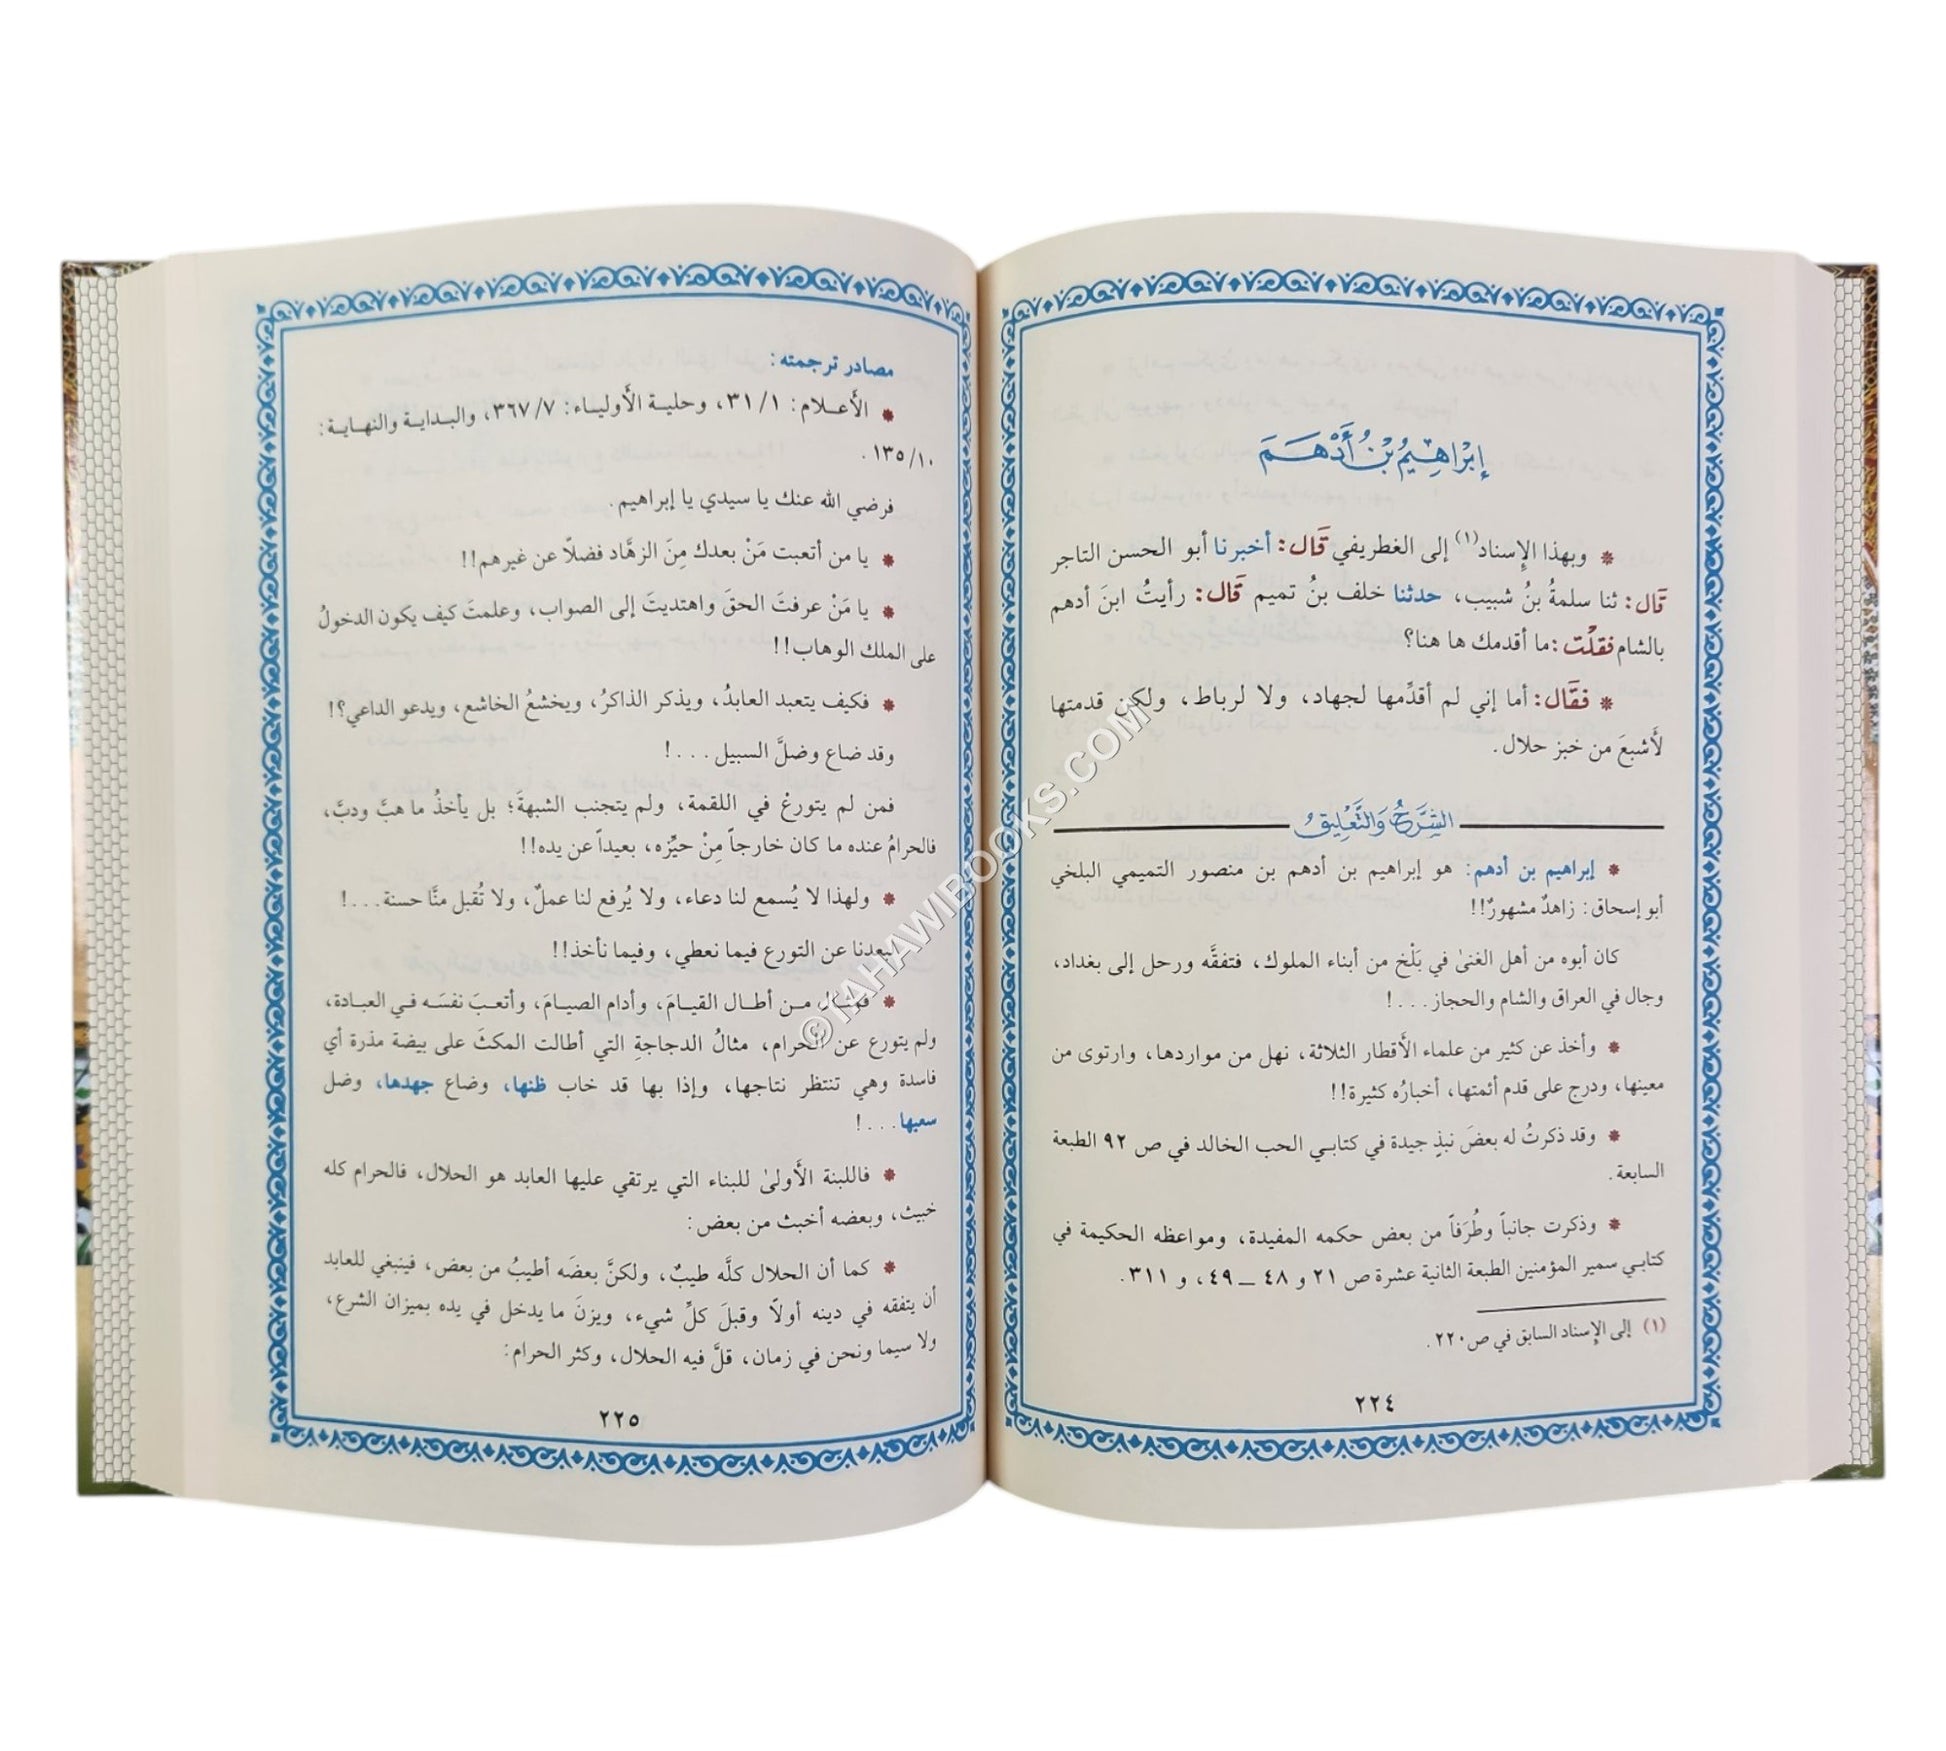 إِبْرَاهِيمُ بْنُ أَدْهَمَ
* وبهذا الإِسناد(١) إلى الغطريفي قَال: أخبرنا أبو الحسن التاجر
قَال: ثنا سلمةُ بنُ شبيب، حدثنا خلف بنُ تميم قَال: رأيتُ ابنَ أدهم
بالشام فقلْت: ما أقدمك ها هنا؟
* فقَال: أما إني لم أقدِّمها لجهاد، ولا لرباط، ولكن قدمتها
لأَشبعَ من خبز حلال.
الشَّرْحُ وَالتَّعْلِيقُ
* إبراهيم بن أدهم: هو إبراهيم بن أدهم بن منصور التميمي البلخي
أبو إسحاق: زاهدٌ مشهورٌ!!
كان أبوه من أهل الغنىٰ في بَلْخ من أبناء الملوك، فتفقَّه ورحل إلى بغداد،
وجال في العراق والشام والحجاز...!
* وأخذ عن كثير من علماء الأَقطار الثلاثة، نهل من مواردها، وارتوى من
معينها، ودرج على قدم أئمتها، أخبارُه كثيرة!!
* وقد ذكرتُ له بعضَ نبذٍ جيدة في كتابي الحب الخالد في ص ٩٢ الطبعة
السابعة.
* وذكرت جانباً وطُرَفاً من بعض حكمه المفيدة، ومواعظه الحكيمة في
كتابي سمير المؤمنين الطبعة الثانية عشرة ص ٢١ و ٤٨ ـ ٤٩، و ٣١١.
(١) إلى الإِسناد السابق في ص٢٢٠.
٢٢٤
مصادر ترجمته:
* الأَعلام: ٣١/١، وحلية الأَولياء: ٣٦٧/٧، والبداية والنهاية:
١٣٥/١٠.
فرضي الله عنك يا سيدي يا إبراهيم.
* يا من أتعبت مَنْ بعدك مِنَ الزهَّاد فضلاً عن غيرهم!!
* يا مَنْ عرفتَ الحقَ واهتديتَ إلى الصواب، وعلمتَ كيف يكون الدخولُ
على الملك الوهاب!!
* فكيف يتعبد العابدُ، ويذكر الذاكرُ، ويخشعُ الخاشع، ويدعو الداعي؟!
وقد ضاع وضلَّ السبيل...!
فمن لم يتورعْ في اللقمة، ولم يتجنب الشبهةَ؛ بل يأخذُ ما هبَّ ودبَّ،
فالحرامُ عنده ما كان خارجاً مِنْ حيِّزه، بعيداً عن يده!!
* ولهذا لا يُسمع لنا دعاء، ولا يُرفع لنا عملٌ، ولا تُقبل منَّا حسنة...!
لبعدنا عن التورع فيما نعطي، وفيما نأخذ!!
* فمثال من أطال القيامَ، وأدام الصيامَ، وأتعبَ نفسَه في العبادة،
ولم يتورع عن الحرام، مثالُ الدجاجةِ التي أطالت المكثَ على بيضة مذرة أي
فاسدة وهي تنتظر نتاجها، وإذا بها قد خاب ظنها، وضاع جهدها، وضل
سعيها...!
* فاللبنة الأَولىٰ للبناء التي يرتقي عليها العابد هو الحلال، فالحرام كله
خبيث، وبعضه أخبث من بعض:
* كما أن الحلال كلَّه طيبٌ، ولكنَّ بعضَه أطيبُ من بعض، فينبغي للعابد
أن يتفقه في دينه أولاً وقبلَ كلِّ شيء، ويزنَ ما يدخل في يده بميزان الشرع،
ولا سيما ونحن في زمان، قلَّ فيه الحلال، وكثر الحرام:
٢٢٥
©TAHAWIBOOKS.COM